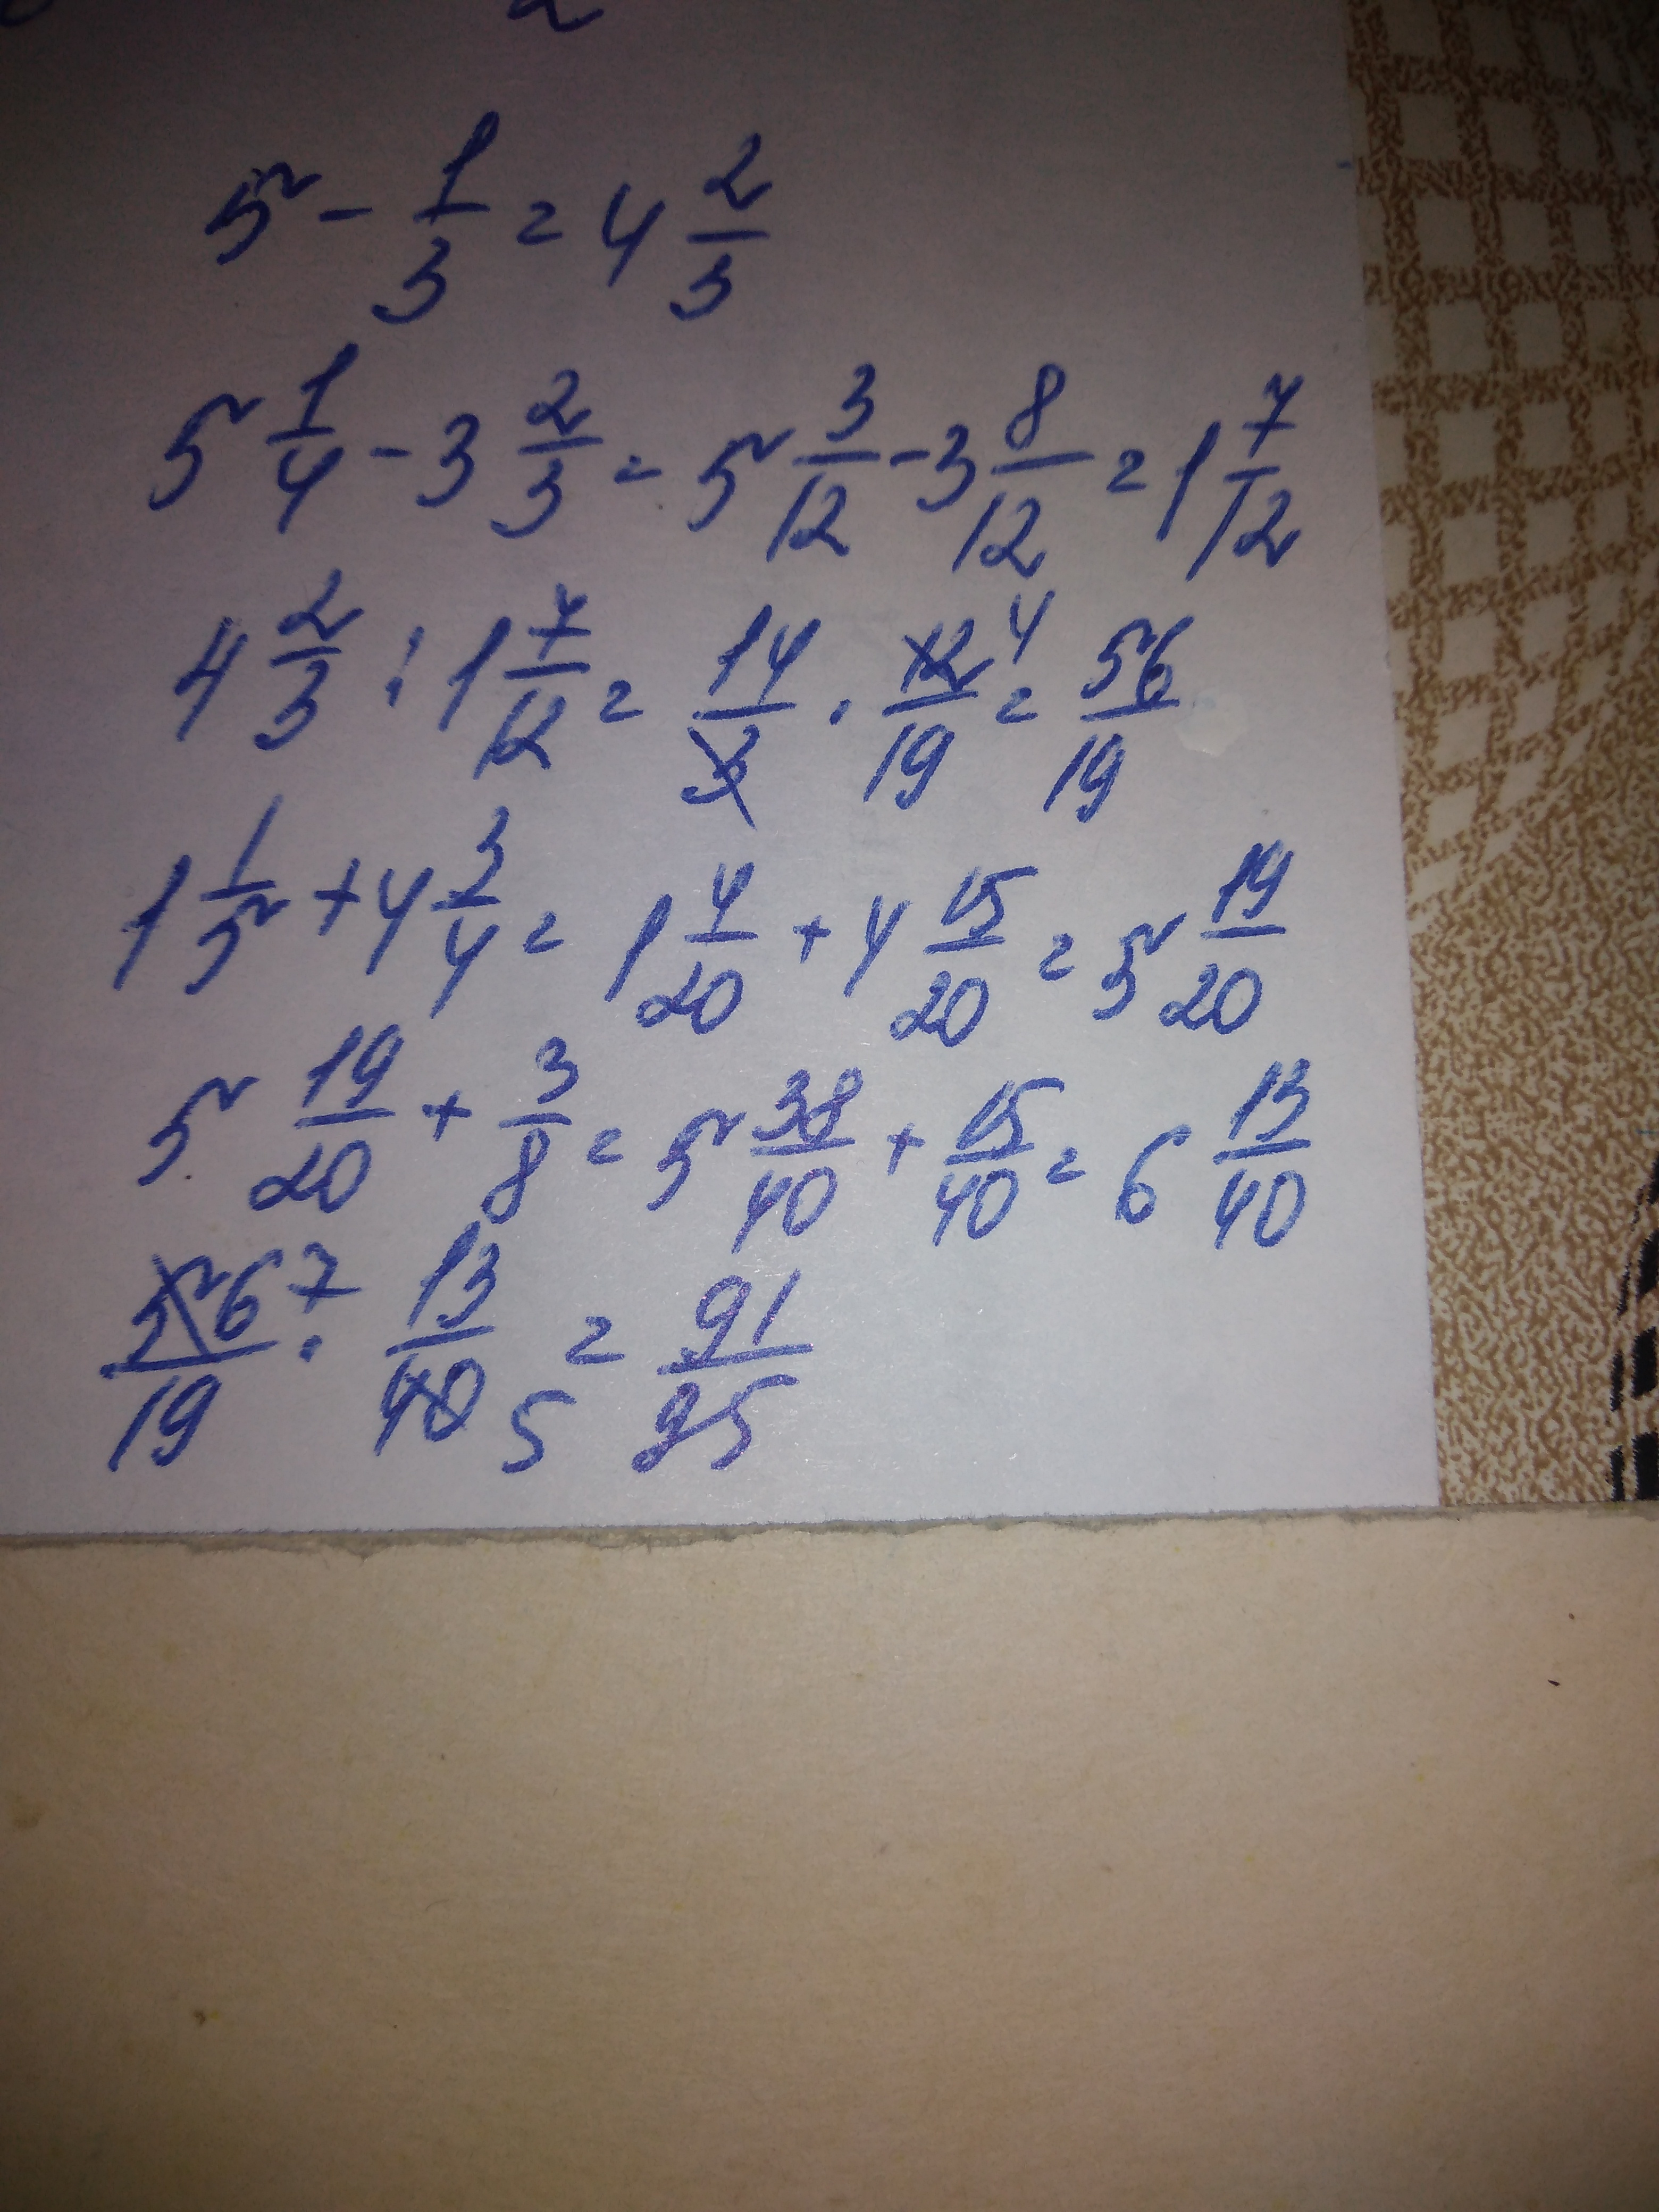 2
5 - 1/3 = 4 2/3
5 1/4 - 3 2/3 = 5 3/12 - 3 8/12 = 1 7/12
4 2/3 : 1 7/12 = 14/3 · 12/19 4 = 56/19
1 1/5 + 4 3/4 = 1 4/20 + 4 15/20 = 5 19/20
5 19/20 + 3/8 = 5 38/40 + 15/40 = 6 13/40
56/19 7 · 13/40 5 = 91/95